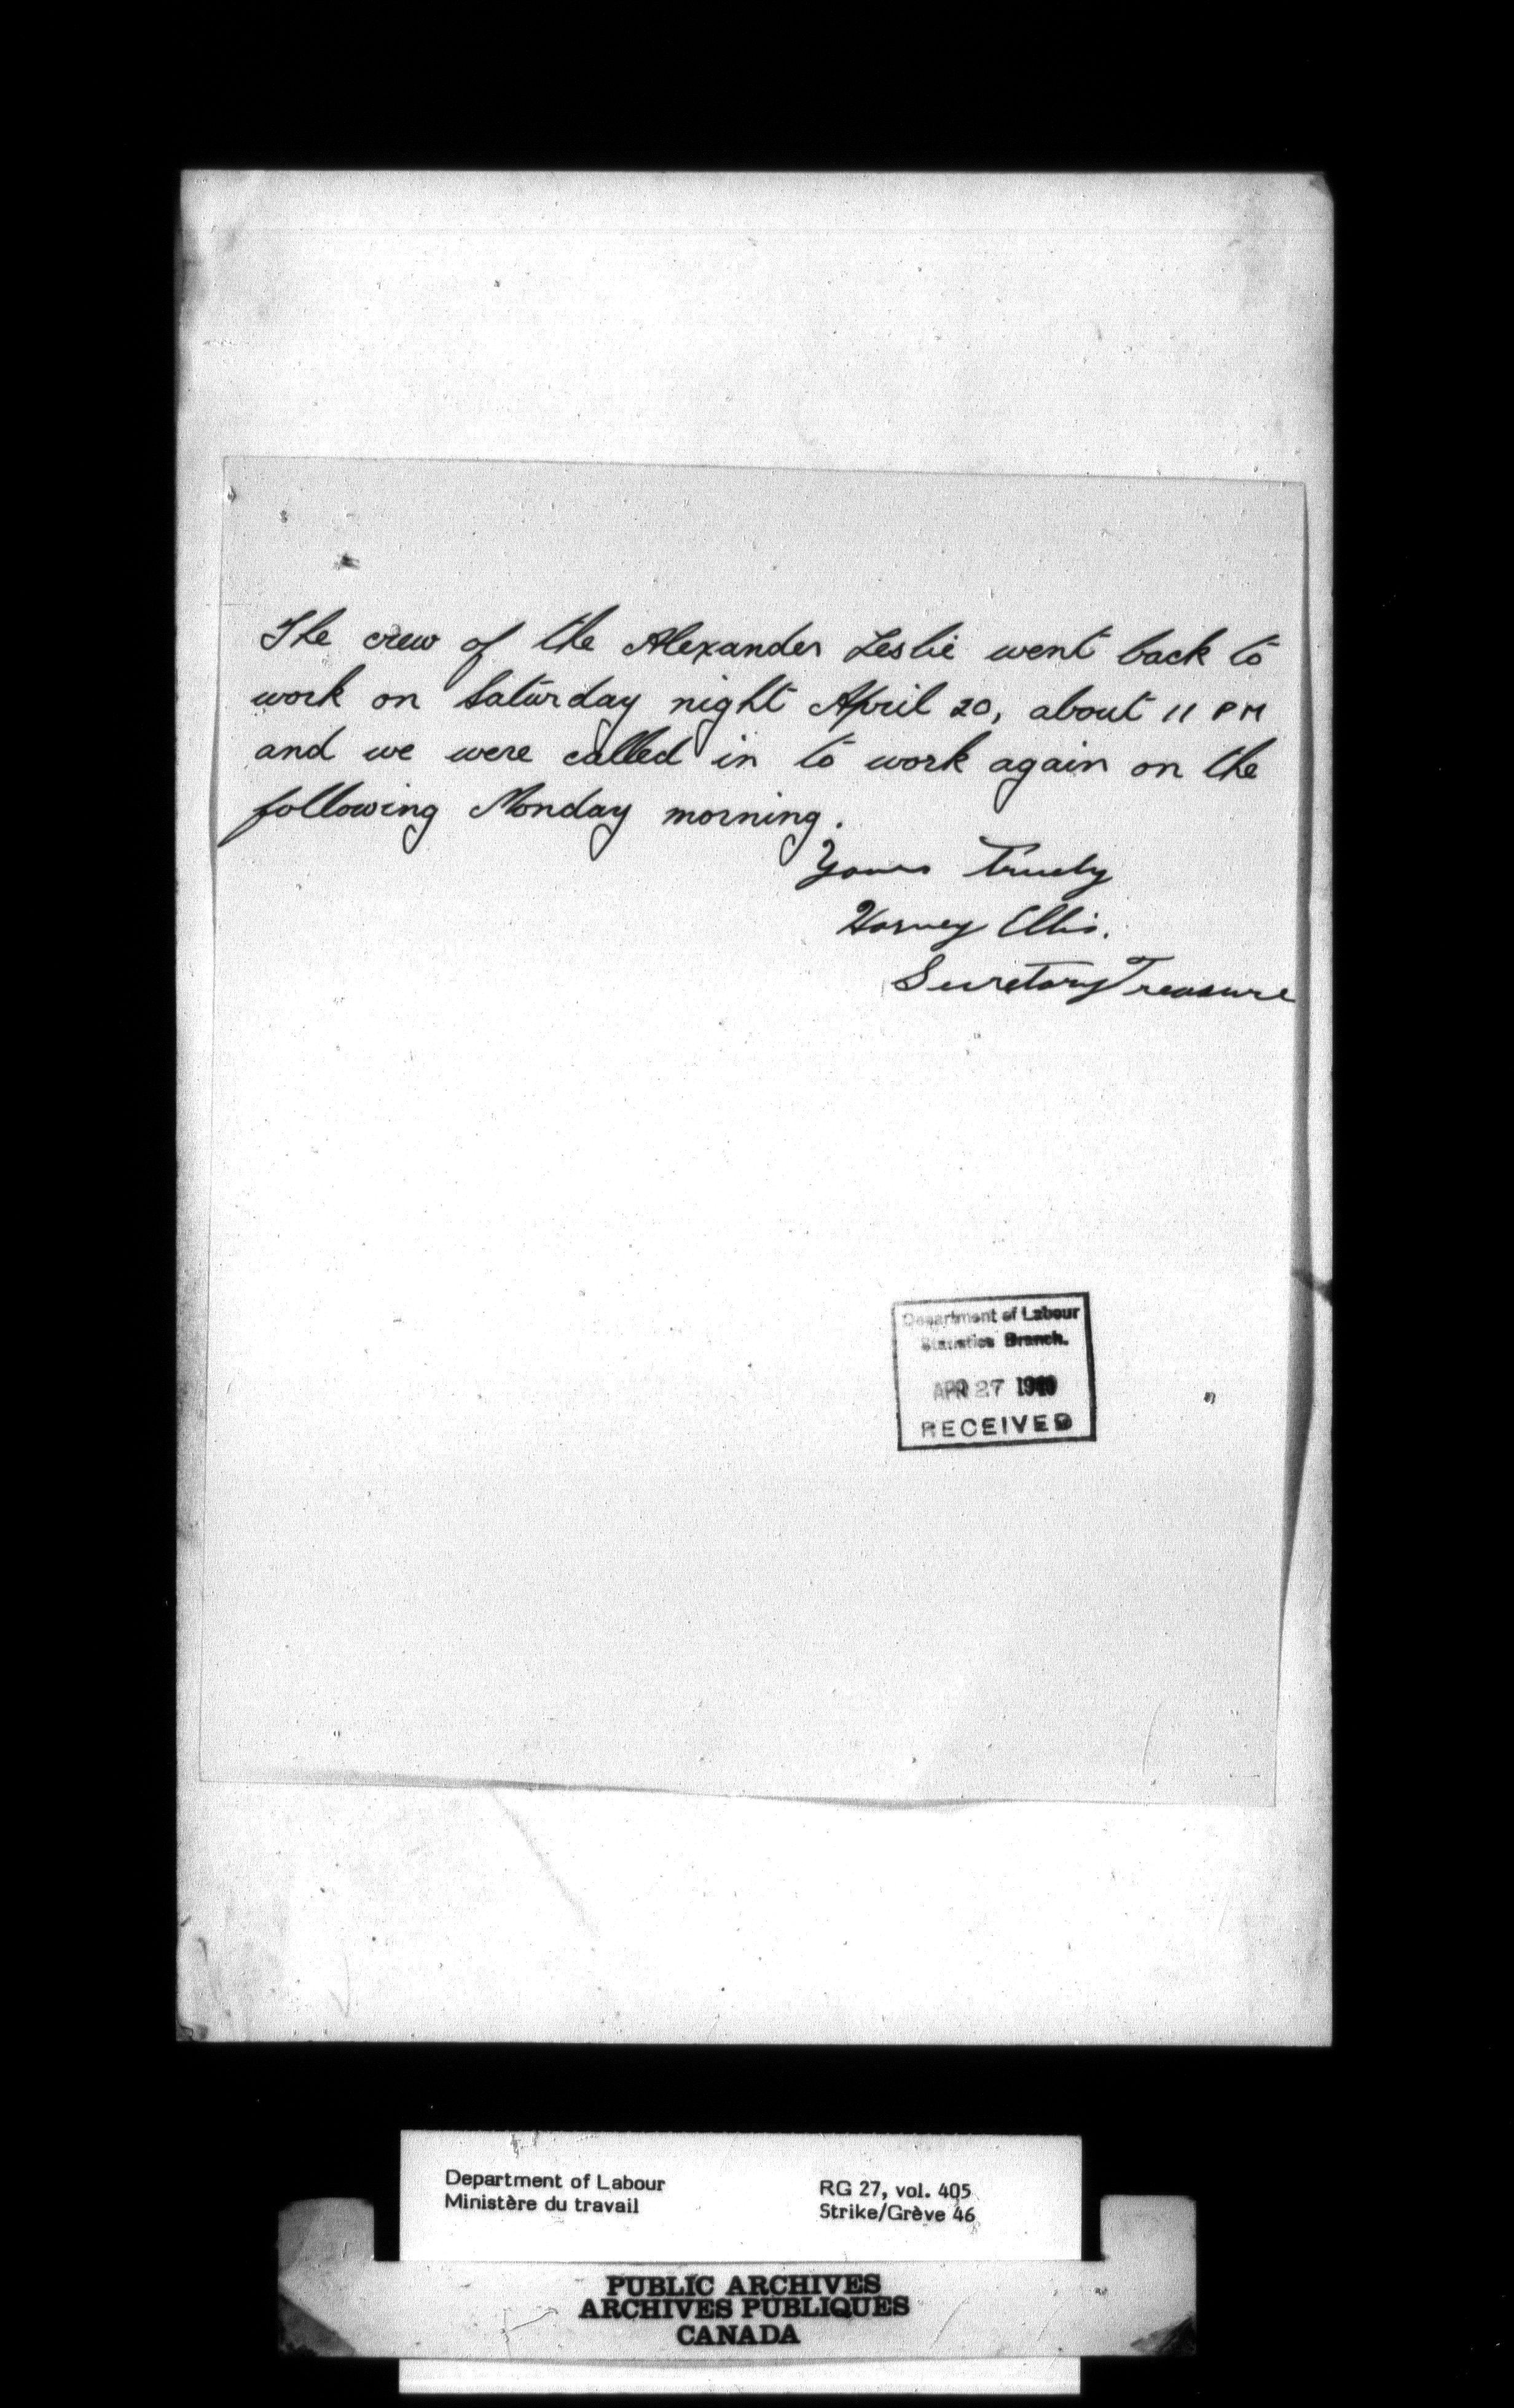 The crew of the Alexander Leslie went back to
work on Saturday night April 20, about 11 PM
and we were called in to work again on the
following Monday morning.
Yours Truely
Harvey Ellis.
Secretary Treasure
Department of Labour
Statistics Branch.
APR 27 1940
RECEIVED
Department of Labour
Ministère du travail
RG 27, vol. 405
Strike/Grève 46
PUBLIC ARCHIVES
ARCHIVES PUBLIQUES
CANADA